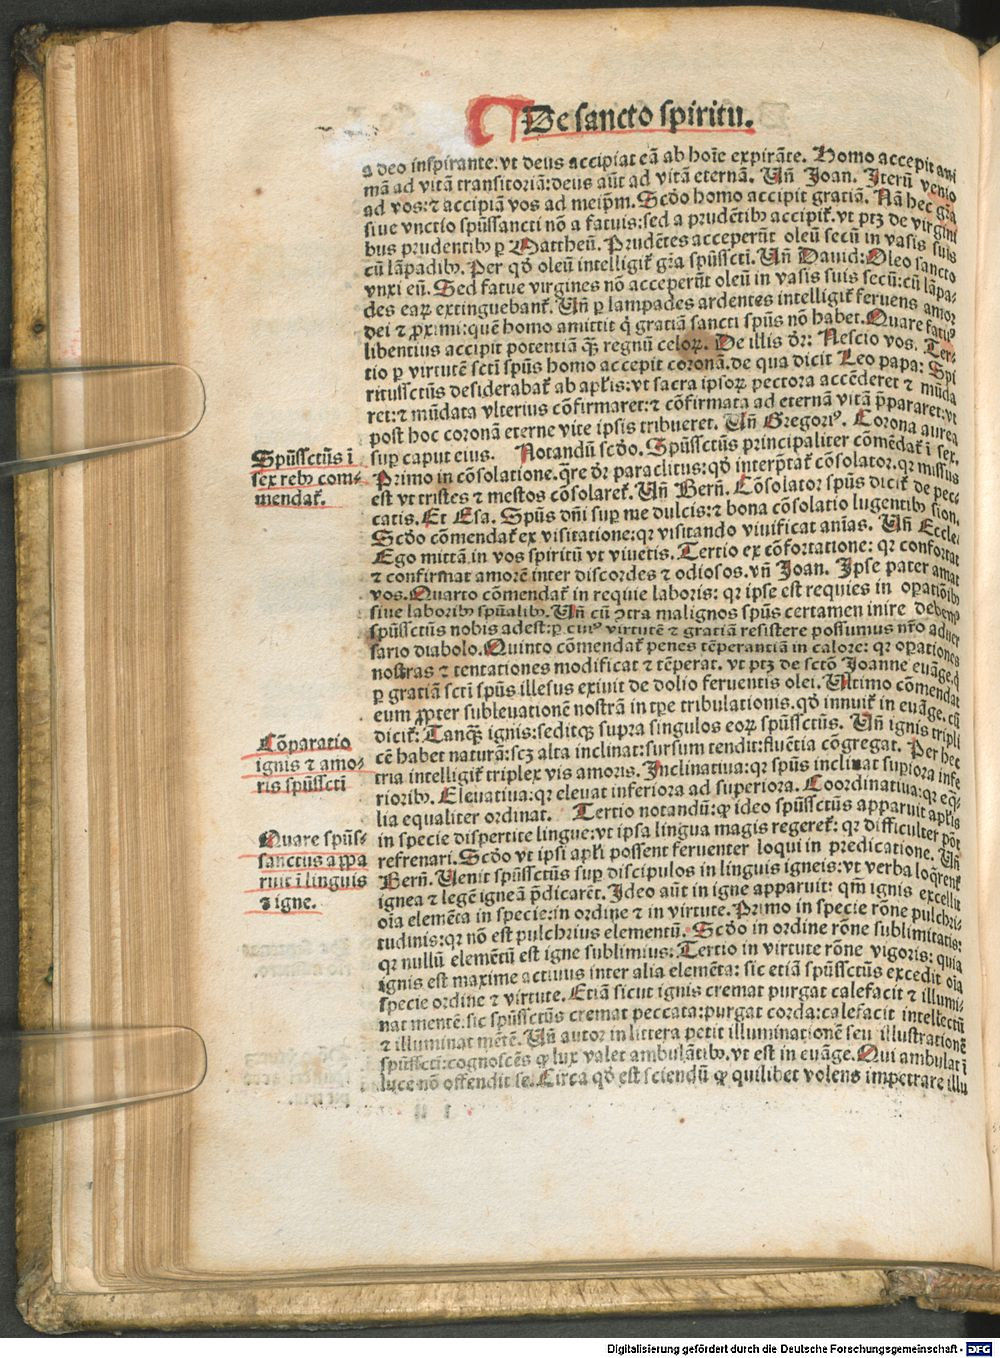 De sancto spiritu.
a deo inspirante: vt deus accipiat eā ab hoīe expirāte. Homo accepit ani
mā ad vitā transitoriā: deus aūt ad vitā eternā. Uñ Joan. Iterū venio
ad vos: ⁊ accipiā vos ad meip̄m. Scd̓o homo accipit gratiā. Nā hec gr̄a
siue vnctio spūssancti nō a fatuis: sed a prudētibꝰ accipit᷑. vt ptꝫ de virgini
bus prudentibꝰ ꝑ Mattheū. Prudētes acceperūt oleū secū in vasis suis
cū lāpadibꝰ. Per qd̓ oleū intelligit᷑ gr̄a spūsscti. Uñ Dauid: Oleo sancto
vnxi eū. Sed fatue virgines nō acceperūt oleū in vasis suis secū: cū lāpa-
des eaꝝ extinguebant᷑. Uñ ꝑ lampades ardentes intelligit᷑ feruens amor
dei ⁊ ꝓximi: quē homo amittit q̇ gratiā sancti spūs nō habet. Quare fatuꝰ
libentius accipit potentiā qꝫ̄ regnū celoꝝ. De illis dr̄: Nescio vos. Ter-
tio ꝑ virtutē scti spūs homo accepit coronā. de qua dicit Leo papa: Spi
ritussctūs desiderabat᷑ ab apl̓is: vt sacra ipsoꝝ pectora accēderet ⁊ mūda
ret: ⁊ mūdata vlterius cōfirmaret: ⁊ cōfirmata ad eternā vitā p̄pararet: vt
post hoc coronā eterne vite ipsis tribueret. Uñ Gregoriꝰ. Corona aurea
suꝑ caput eius. Notandū scd̓o. Spūssctūs principaliter cōmēdat᷑ ī sex.
Spūssctūs ī
sex rebꝰ com-
mendat᷑.
Primo in cōsolatione. q̄re dr̄ paraclitus: qd̓ interp̄tat᷑ cōsolator. qr missus
est vt tristes ⁊ mestos cōsolaret᷑. Uñ Berñ. Cōsolator spūs dicit᷑ de pec-
catis. Et Esa. Spūs dn̄i suꝑ me dulcis: ⁊ bona cōsolatio lugentibꝰ sion.
Scd̓o cōmendat᷑ ex visitatione: qr visitando viuificat anīas. Uñ Eccle.
Ego mittā in vos spiritū vt viuetis. Tertio ex cōfortatione: qr confortat
⁊ confirmat amorē inter discordes ⁊ odiosos. vñ Joan. Ipse pater amat
vos. Quarto cōmendat᷑ in requie laboris: qr ipse est requies in oꝑatiōibꝰ
siue laboribꝰ spūalibꝰ. Uñ cū ꝯtra malignos spūs certamen inire debemꝰ
spūssctūs nobis adest: ꝑ cuiꝰ virtutē ⁊ gratiā resistere possumus nr̄o aduer
sario diabolo. Quinto cōmendat᷑ penes tēperantiā in calore: qr oꝑationes
nostras ⁊ tentationes modificat ⁊ tēperat. vt ptꝫ de sctō Joanne euāge. q̇
ꝑ gratiā scti spūs illesus exiuit de dolio feruentis olei. Ultimo cōmendat
eum ꝓpter subleuationē nostrā in tꝑe tribulationis. qd̓ innuit᷑ in euāge. cū
dicit᷑: Tanqꝫ̄ ignis: seditqꝫ supra singulos eoꝝ spūssctūs. Uñ ignis tripli
Cōparatio
ignis ⁊ amo-
ris spūsscti
cē habet naturā: scꝫ alta inclinat: sursum tendit: fluētia cōgregat. Per hec
tria intelligit᷑ triplex vis amoris. Inclinatiua: qr spūs inclinat suꝑiora infe
rioribꝰ. Eleuatiua: qr eleuat inferiora ad superiora. Coordinatiua: qr eq̄-
lia equaliter ordinat. Tertio notandū: ꝙ ideo spūssctūs apparuit apl̓is
Quare spūs-
sanctus appa
ruit ī linguis
⁊ igne.
in specie dispertite lingue: vt ipsa lingua magis regeret᷑: qr difficulter pōt
refrenari. Scd̓o vt ipsi apl̓i possent feruenter loqui in predicatione. Uñ
Berñ. Uenit spūssctūs suꝑ discipulos in linguis igneis: vt verba loq̄rent᷑
ignea ⁊ legē igneā p̄dicarēt. Ideo aūt in igne apparuit: qm̄ ignis excellit
oīa elemēta in specie: in ordine ⁊ in virtute. Primo in specie rōne pulchri-
tudinis: qr nō est pulchrius elementū. Scd̓o in ordine rōne sublimitatis:
qr nullū elemētū est igne sublimius: Tertio in virtute rōne vigoris: quia
ignis est maxime actiuus inter alia elemēta: sic etiā spūssctūs excedit oīa
specie ordine ⁊ virtute. Etiā sicut ignis cremat purgat calefacit ⁊ illumi-
nat mentē. sic spūssctūs cremat peccata: purgat corda: calefacit intellectū
⁊ illuminat mētē. Uñ autor in littera petit illuminationē seu illustrationē
spūsscti: cognoscēs ꝙ lux valet ambulātibꝰ. vt est in euāge. Qui ambulat ī
luce nō offendit se. Circa qd̓ est sciendū ꝙ quilibet volens impetrare illu
Digitalisierung gefördert durch die Deutsche Forschungsgemeinschaft - DFG